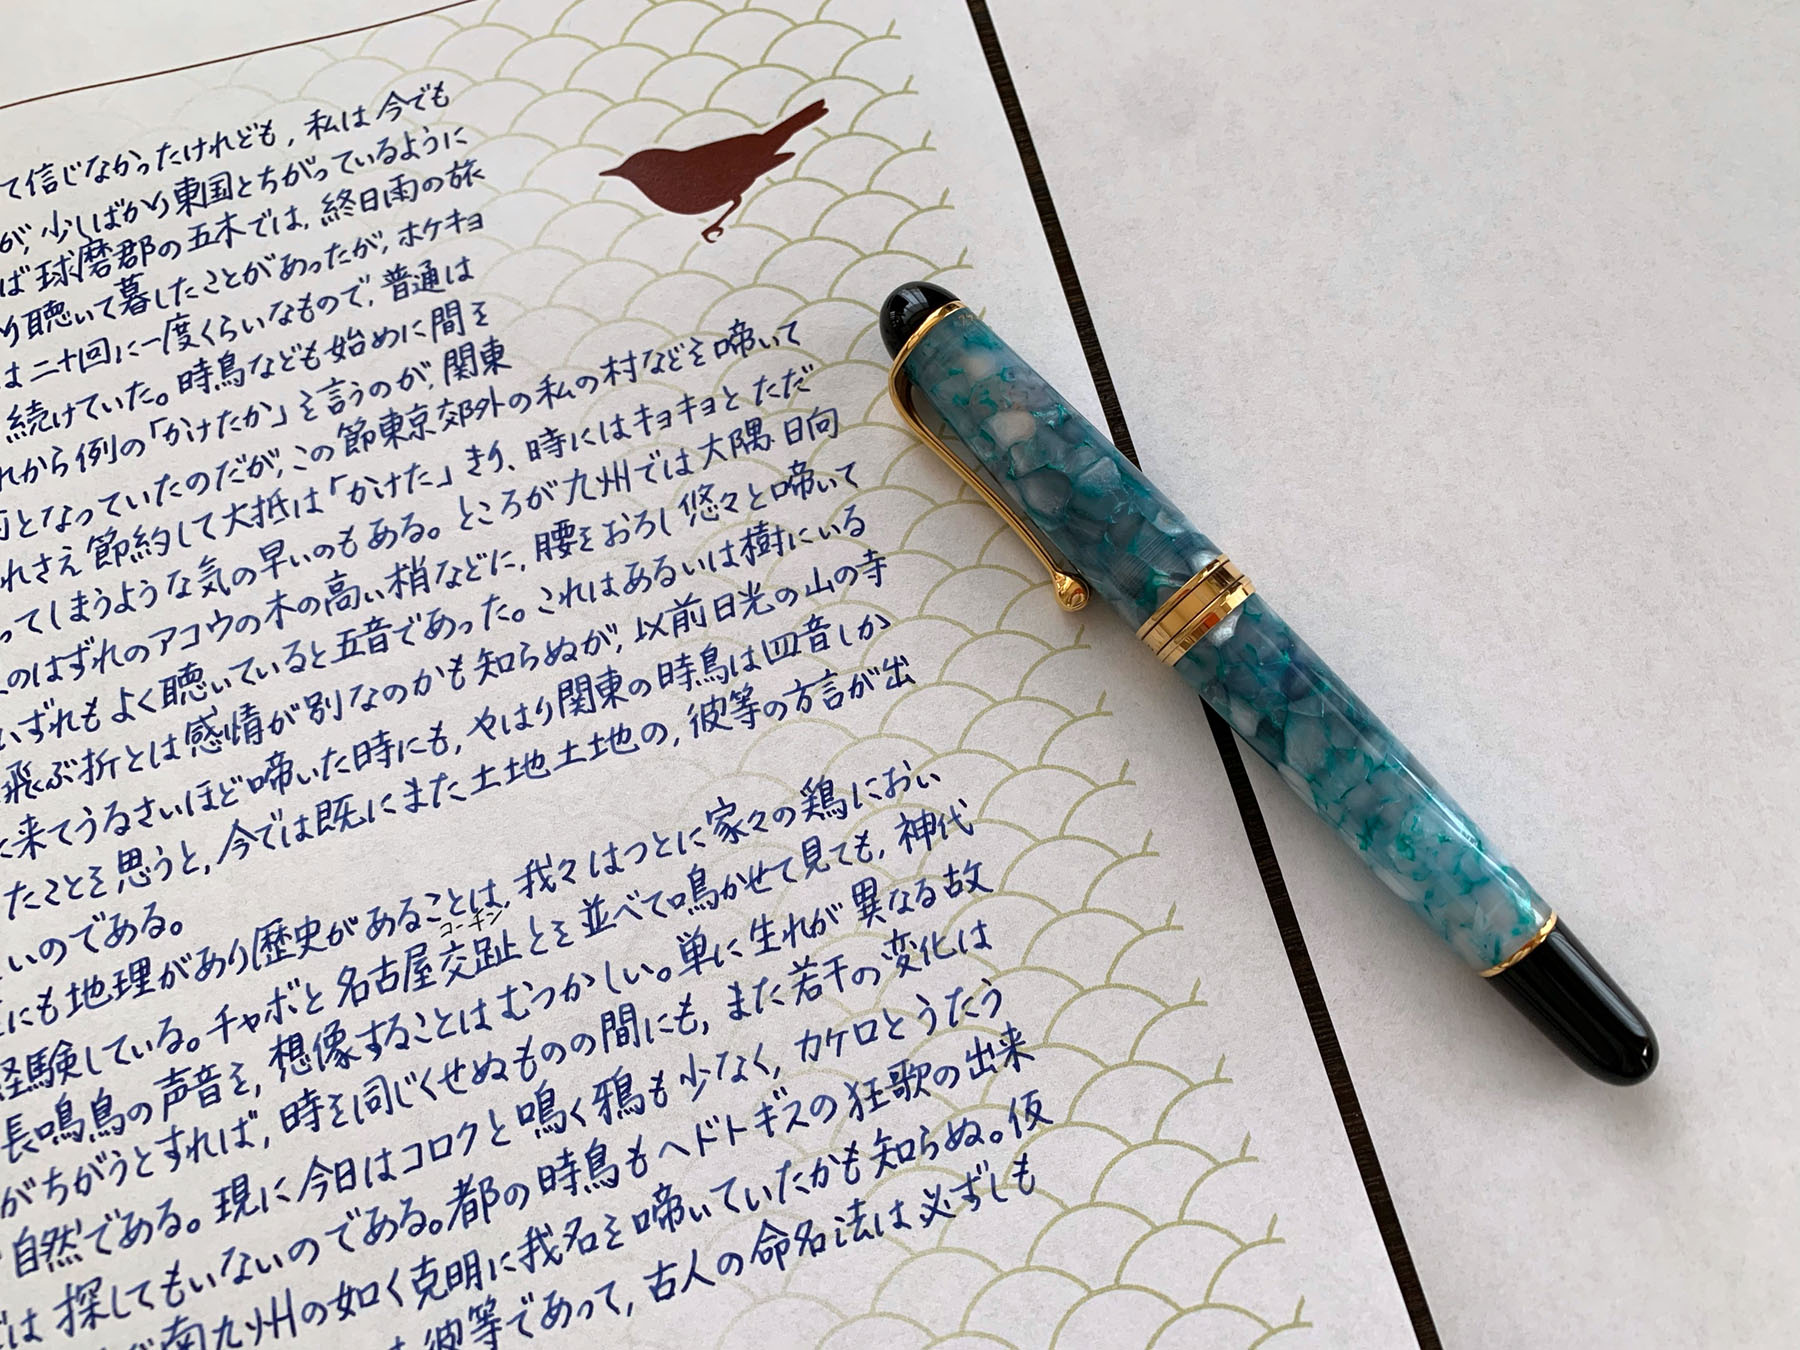 て信じなかったけれども, 私は今でも
が, 少しばかり東国とちがっているように
ば球磨郡の五木では, 終日雨の旅
り聴いて暮したことがあったが, ホケキョ
は二十回に一度くらいなもので, 普通は
続けていた。時鳥なども始めに間を
れから例の「かけたか」を言うのが, 関東
となっていたのだが, この節東京郊外の私の村などを啼いて
れさえ節約して大抵は「かけた」きり、時にはキョキョとただ
ってしまうような気の早いのもある。ところが九州では大隅日向
のはずれのアコウの木の高い梢などに, 腰をおろし悠々と啼いて
いずれもよく聴いていると五音であった。これはあるいは樹にいる
飛ぶ折とは感情が別なのかも知らぬが, 以前日光の山の寺
に来てうるさいほど啼いた時にも, やはり関東の時鳥は四音しか
たことを思うと, 今では既にまた土地土地の, 彼等の方言が出
いのである。
にも地理があり歴史があることは, 我々はつとに家々の鶏におい
経験している。チャボと名古屋交趾とを並べて鳴かせて見ても, 神代
コーチン
長鳴鳥の声音を, 想像することはむつかしい。単に生れが異なる故
がちがうとすれば, 時を同じくせぬものの間にも, また若干の変化は
自然である。現に今日はコロクと鳴く鴉も少なく, カケロとうたう
は探してもいないのである。都の時鳥もヘドトギスの狂歌の出来
南九州の如く克明に我名を啼いていたかも知らぬ。仮
彼等であって, 古人の命名法は必ずしも